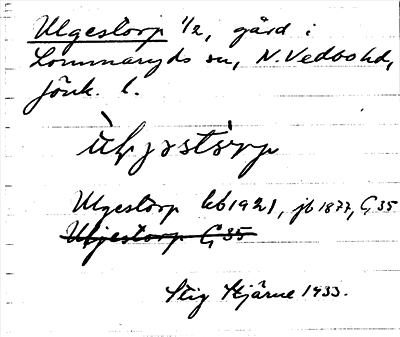 Ulgestorp 1/2, gård i
Lommaryds sn, N. Vedbo hd,
Jönk. l.
Ulgestorp kb 1921, jb 1877, G 35
Uljestorp G 35
Stig Stjärne 1933.